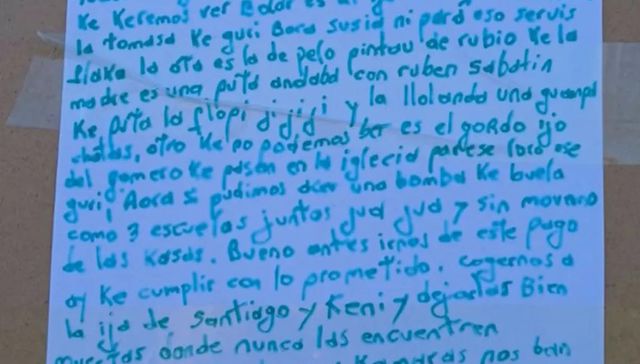 Ke Keremos ver Bolar es al
la tomasa Ke guri Bora susia ni para eso servis
flaka la ota es la de pelo pintau de rubio Ke la
madre es una puta andaba con ruben sabatin
Ke puta la flopi jijiji y la llolanda una guampa
chatas, otro Ke po podemos ber es el gordo ijo
del gomero Ke pasan en la iglecia parese loro ese
guri, Aora si pudimos aser una bomba Ke buela
como 3 escuelas juntas jua jua y sin movernos
de las Kasas. Bueno antes irnos de este pago
ay Ke cumplir con lo prometido. cogernos a
la ija de Santiago y Keni y dejarlas Bien
muertas donde nunca las encuentren
Kamaras nos ban